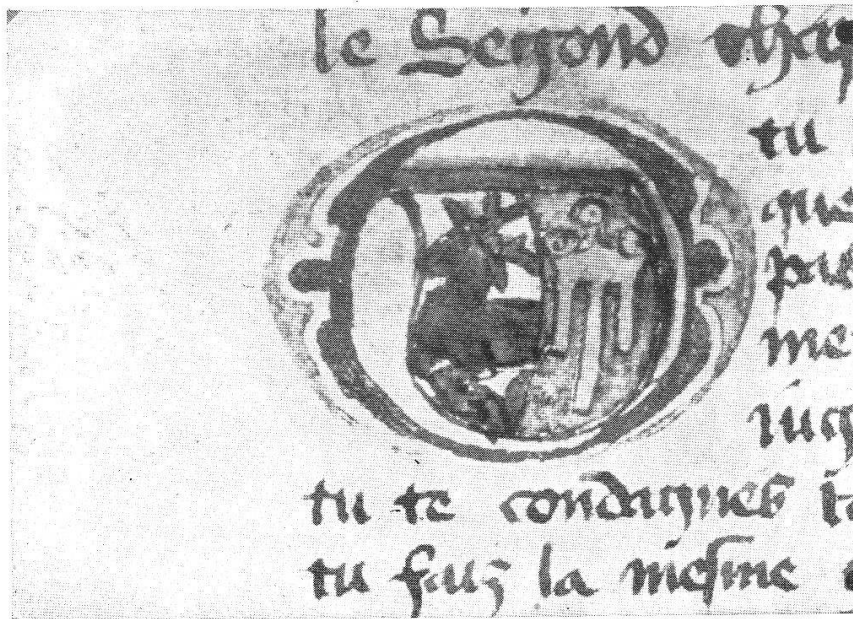 le Segond chap
tu
que
me
iug
tu te condagnes
tu faiz la mesme